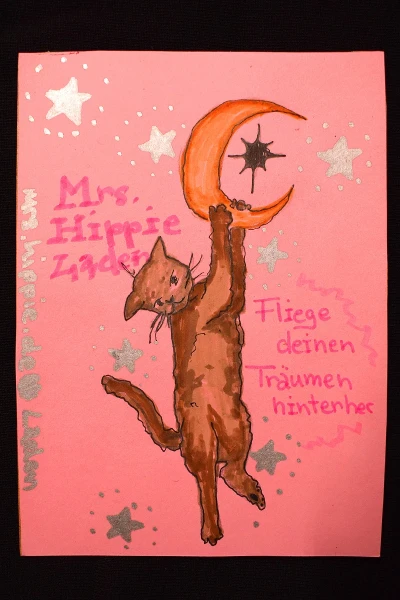 Mrs.
Hippie
Laden
Fliege
deinen
Träumen
hinterher
mrs.hippie.de@ Laden